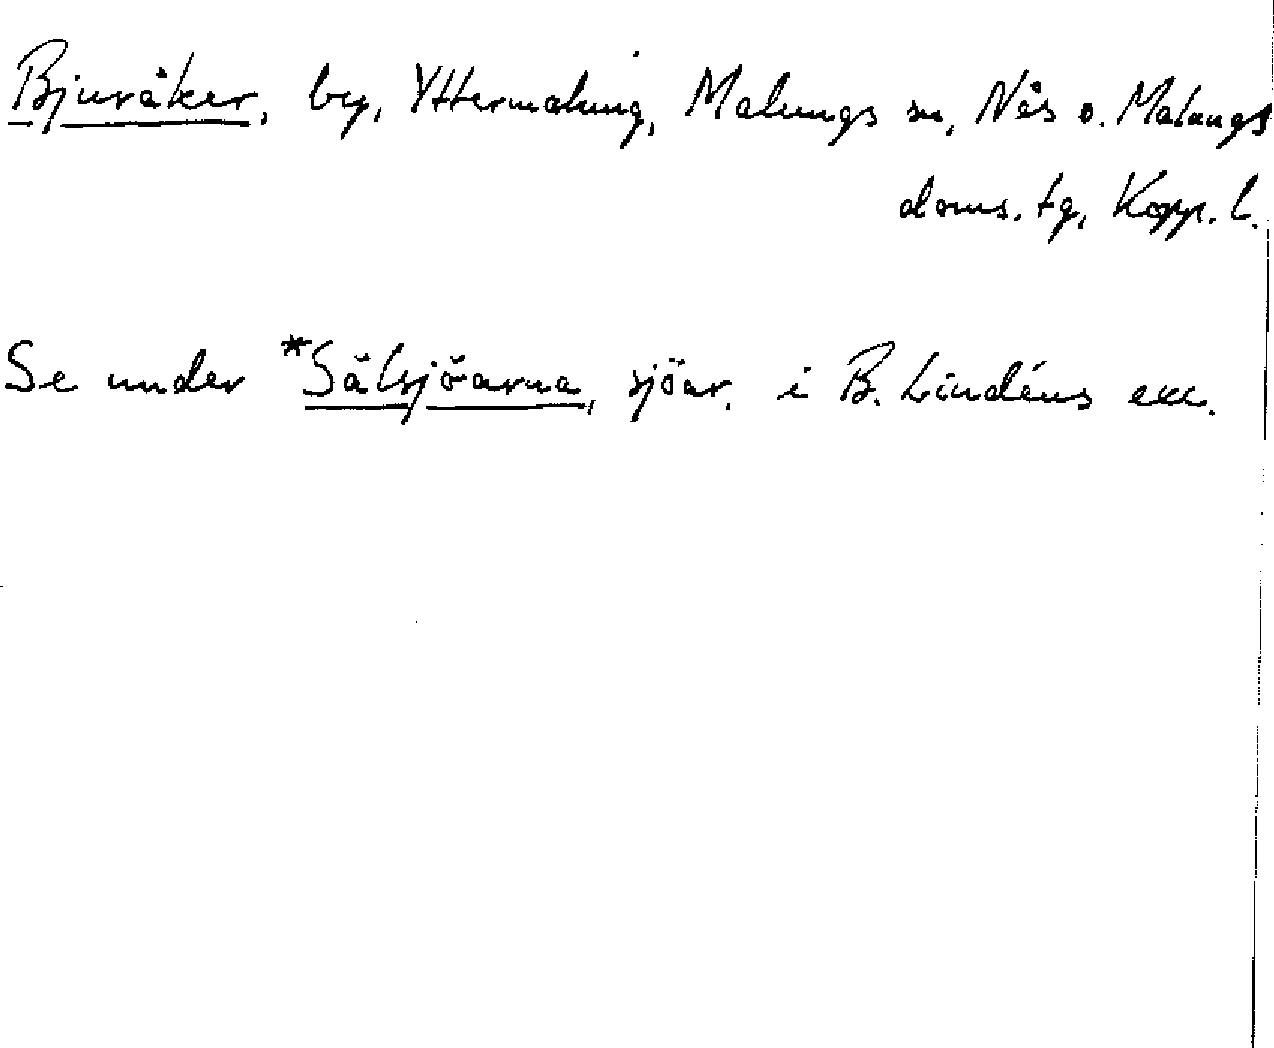 Bjuråker, by, Yttermalung, Malungs sn, Nås o. Malungs
doms. tg, Kopp. l.
Se under *Sälsjöarna, sjöar. i B. Lindéns exc.